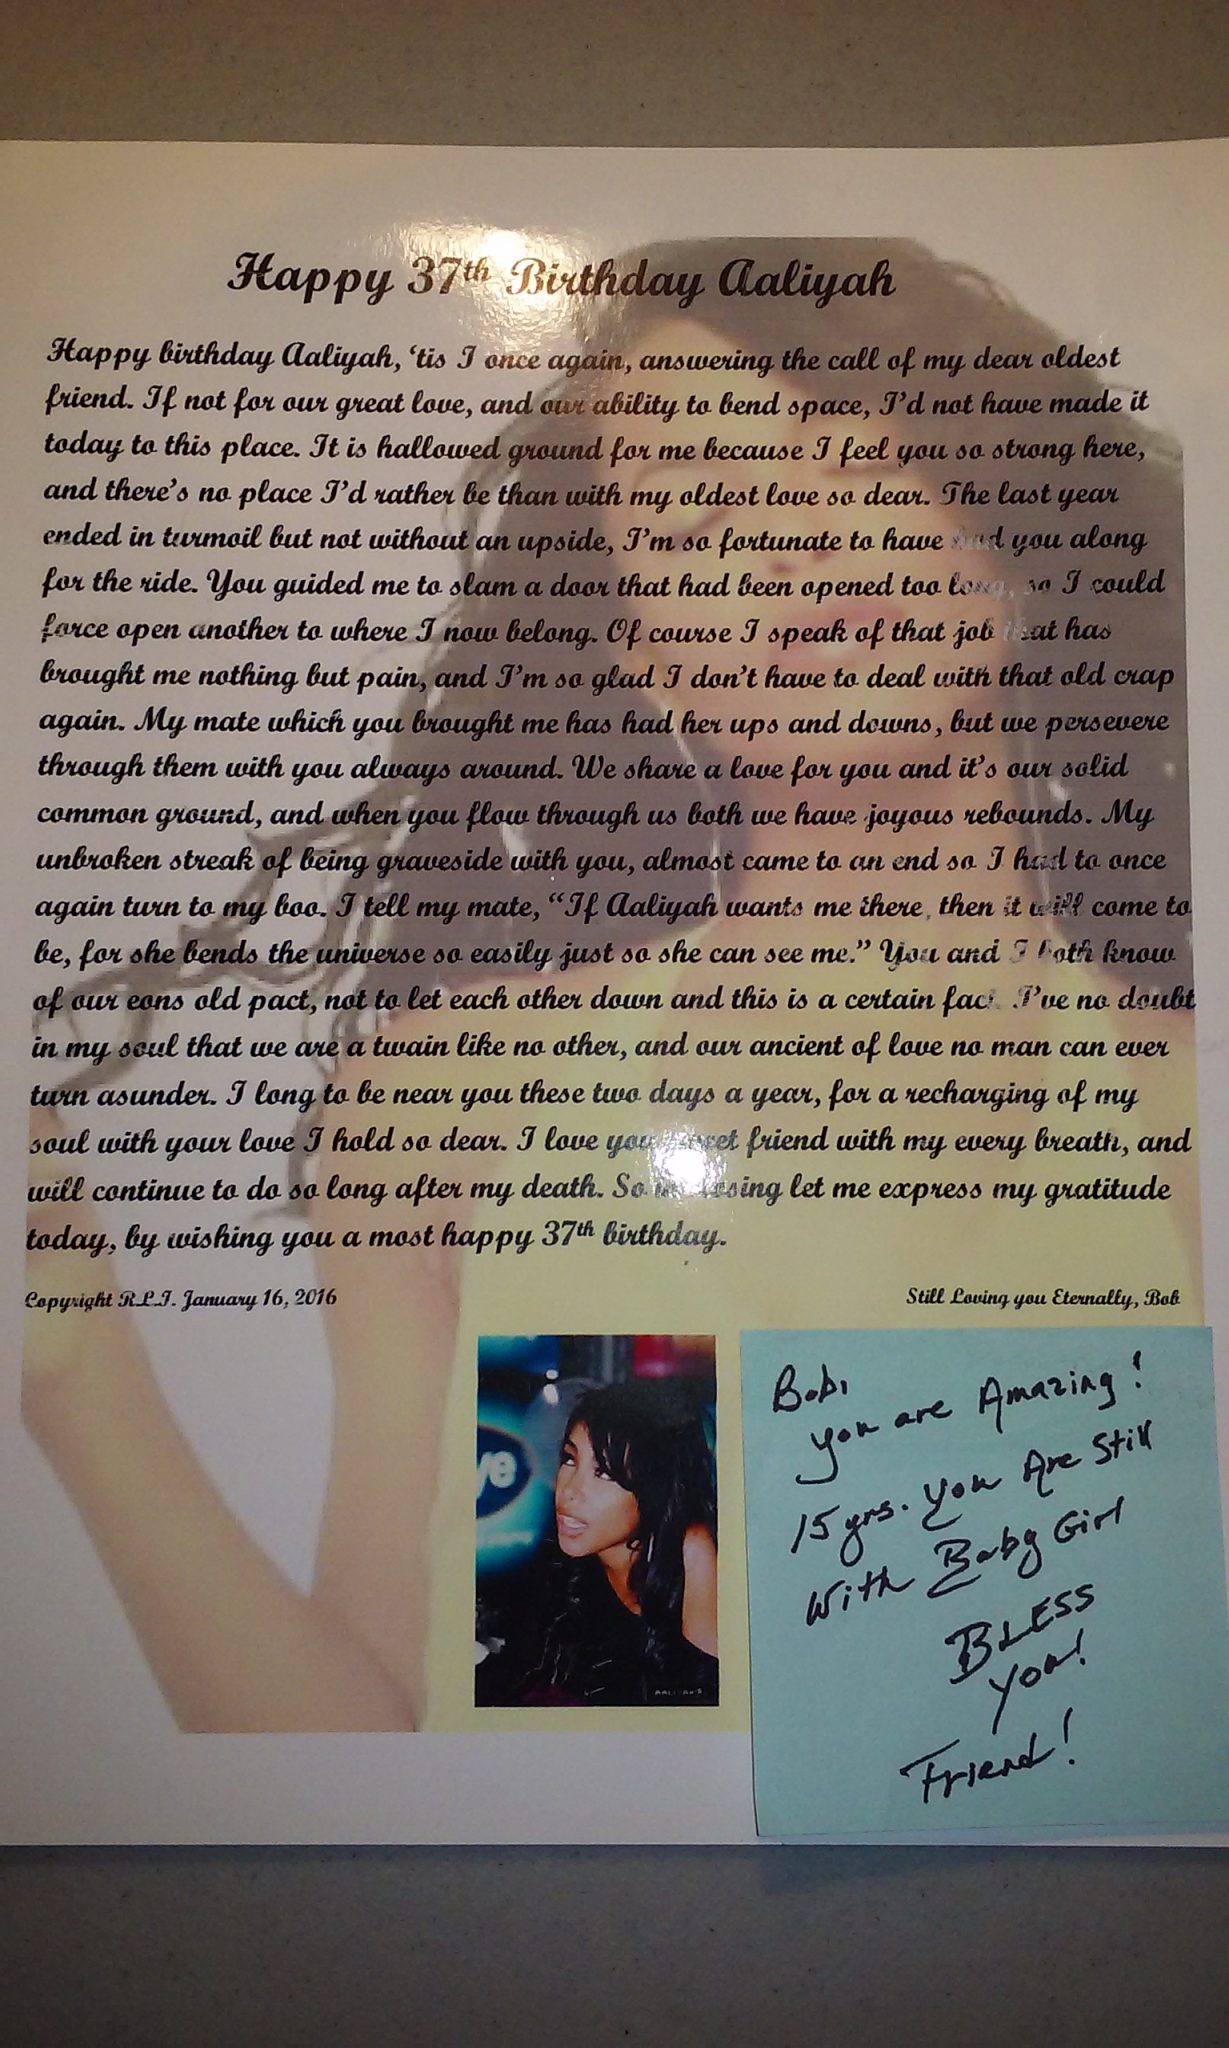 Happy 37th Birthday Aaliyah
Happy birthday Aaliyah, ‘tis I once again, answering the call of my dear oldest
friend. If not for our great love, and our ability to bend space, I’d not have made it
today to this place. It is hallowed ground for me because I feel you so strong here,
and there’s no place I’d rather be than with my oldest love so dear. The last year
ended in turmoil but not without an upside, I’m so fortunate to have had you along
for the ride. You guided me to slam a door that had been opened too long, so I could
force open another to where I now belong. Of course I speak of that job that has
brought me nothing but pain, and I’m so glad I don’t have to deal with that old crap
again. My mate which you brought me has had her ups and downs, but we persevere
through them with you always around. We share a love for you and it’s our solid
common ground, and when you flow through us both we have joyous rebounds. My
unbroken streak of being graveside with you, almost came to an end so I had to once
again turn to my boo. I tell my mate, “If Aaliyah wants me there, then it will come to
be, for she bends the universe so easily just so she can see me.” You and I both know
of our eons old pact, not to let each other down and this is a certain fact. I’ve no doubt
in my soul that we are a twain like no other, and our ancient of love no man can ever
turn asunder. I long to be near you these two days a year, for a recharging of my
soul with your love I hold so dear. I love you sweet friend with my every breath, and
will continue to do so long after my death. So in closing let me express my gratitude
today, by wishing you a most happy 37th birthday.
Copyright R.L.I. January 16, 2016
Still Loving you Eternally, Bob
ye
AALIYAH'S
Bob,
You are Amazing!
15 yrs. You Are Still
With Baby Girl
BLESS
You!
Friend!